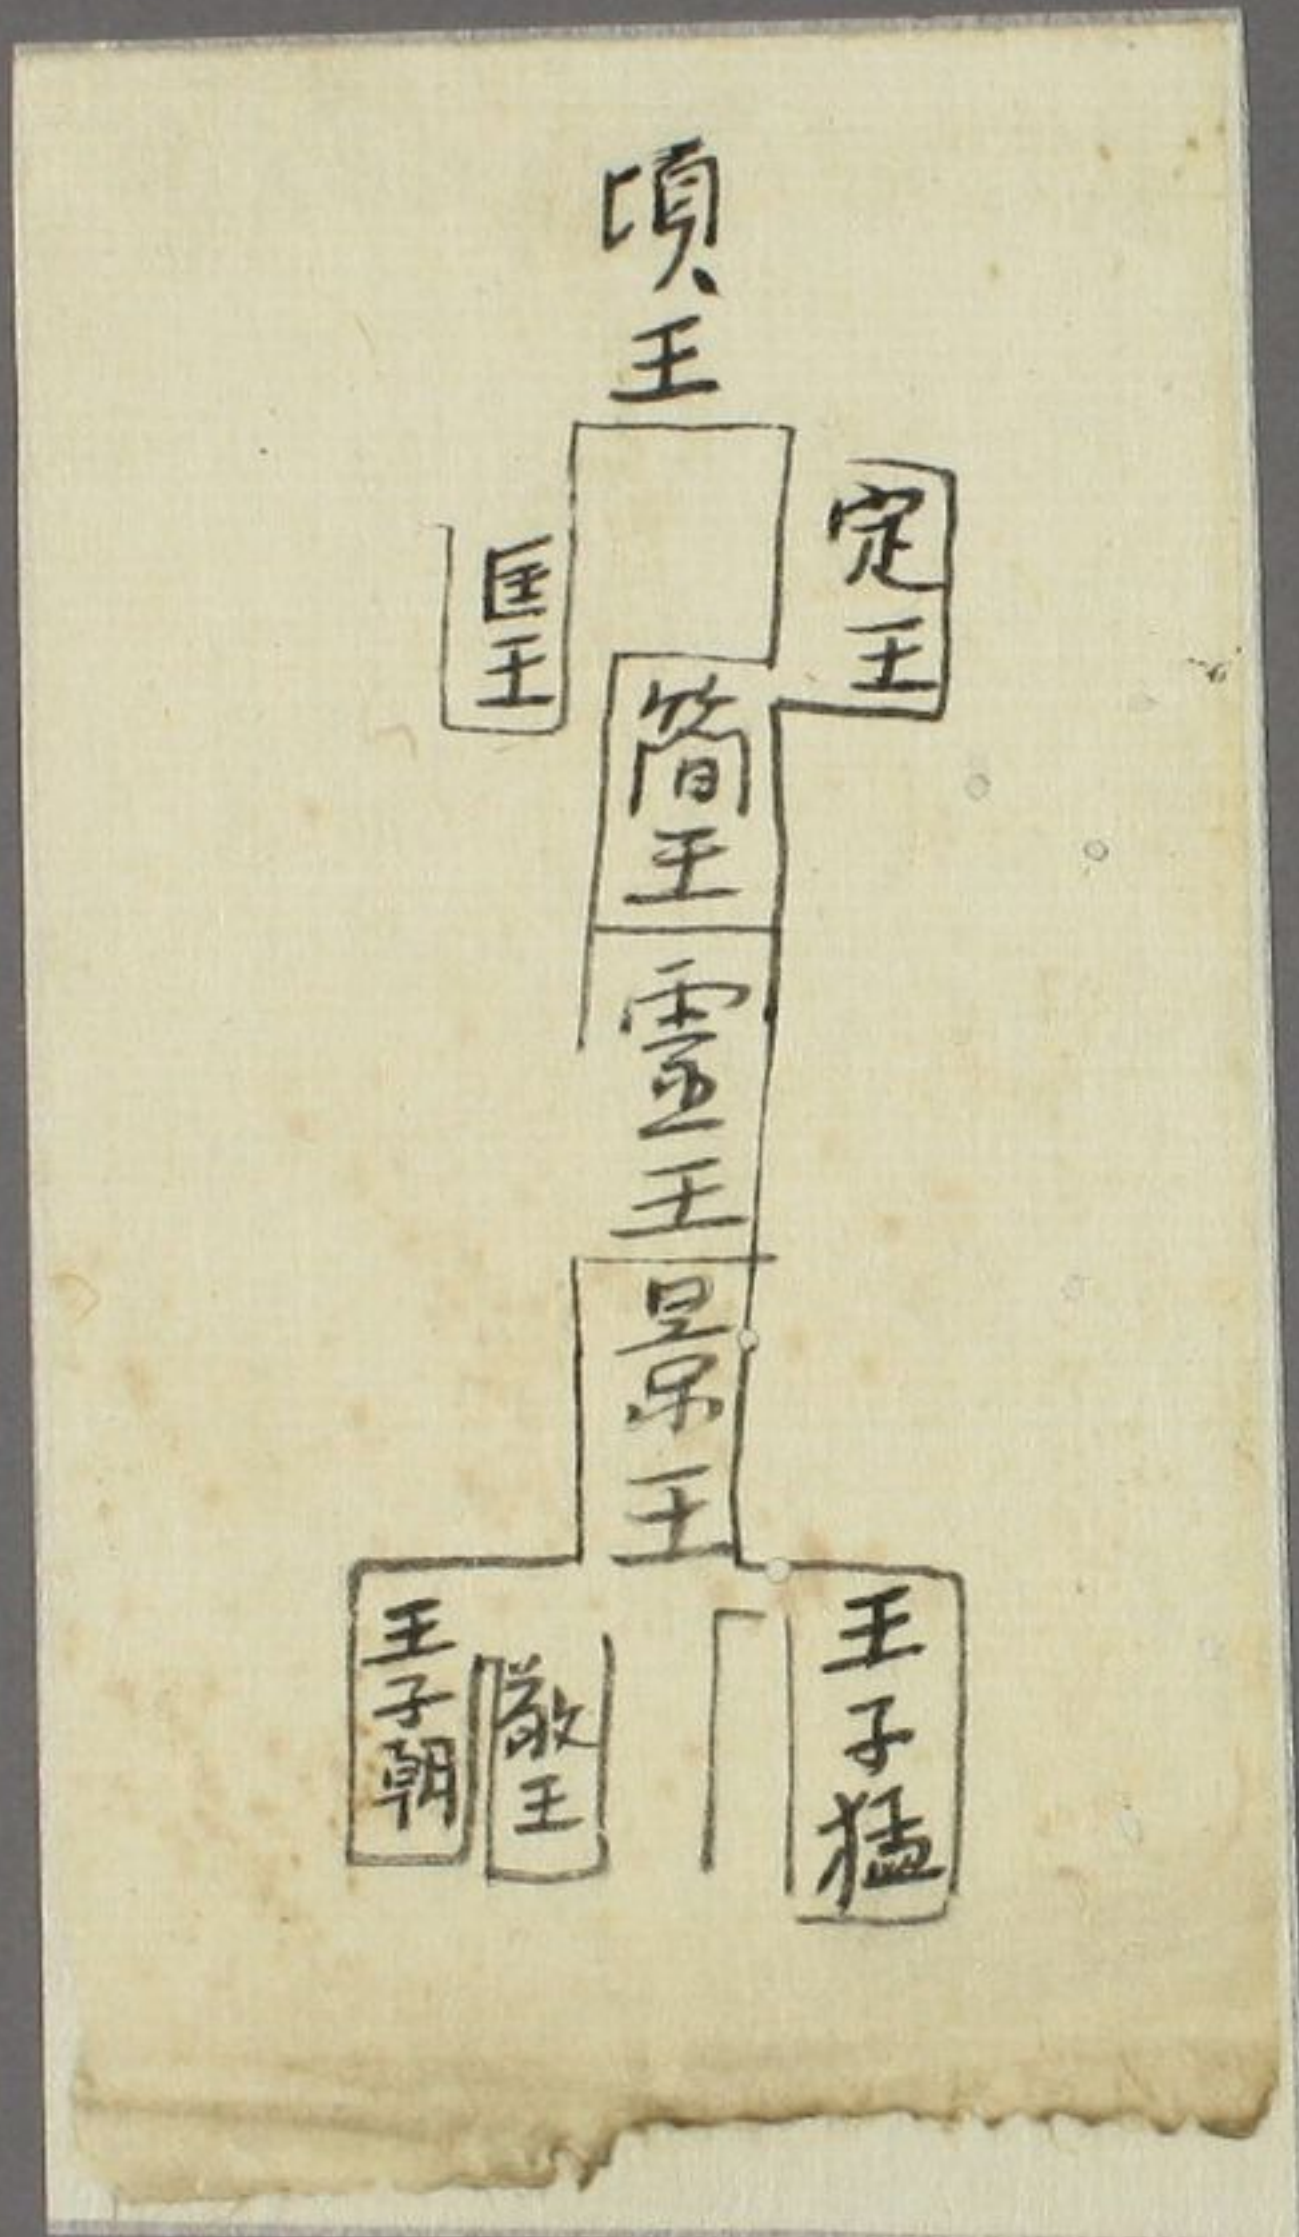 頃王
定王
匡王
簡王
霊王
景王
王子猛
敬王
王子朝